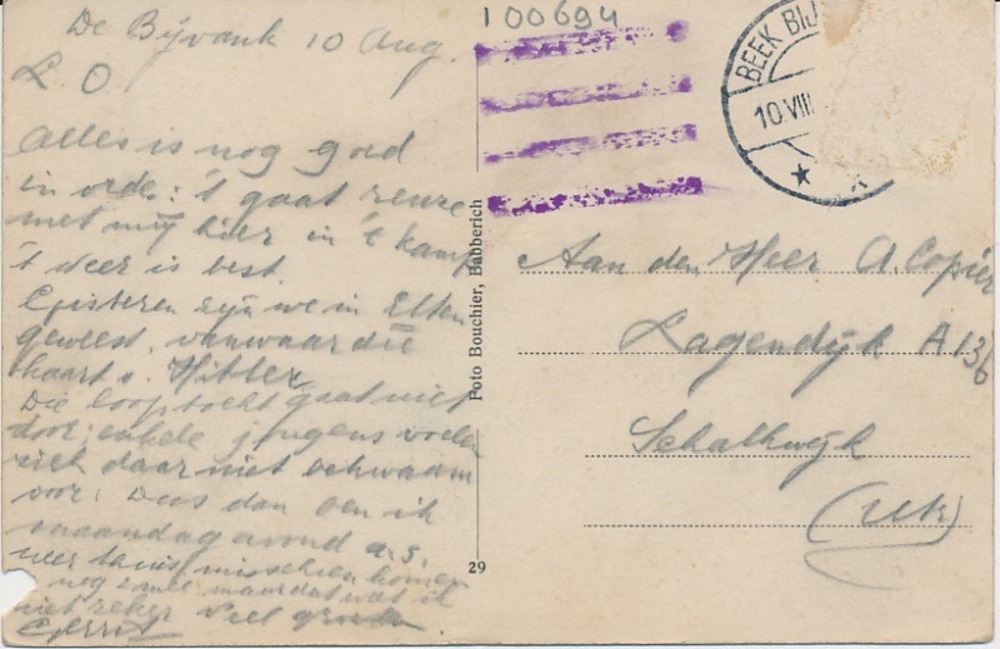 De Bijvank 10 Aug.
L. O.
Alles is nog goed
in orde: 't gaat reuze
met mij hier in 't kamp
't weer is best.
Gisteren zijn we in Elten
geweest, vanwaar die
kaart v. Hitler.
Die looptocht gaat niet
door; enkele jongens voelen
zich daar niet bekwaam
voor. Dus dan ben ik
maandagavond a.s.
weer thuis, misschien komen
nog maar dat weet ik
niet zeker Veel groeten
Gerrit
100694
BEEK BIJ
10 VIII
Foto Bouchier, Babberich
29
Aan den Heer A. Copier
Lagendijk A 136
Schalkwijk
(Utr)